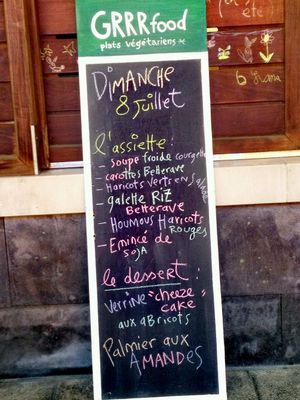 GRRRfood
plats végétariens
DiMANCHE
8 juillet
l'assiette :
- soupe froide courgette
- carottes Betterave
- Haricots verts en salade
- galette Riz
Betterave
- Houmous Haricots
Rouges
- Emincé de
soja
le dessert :
Verrine "cheeze
cake"
aux abricots
Palmier aux
AMANDES